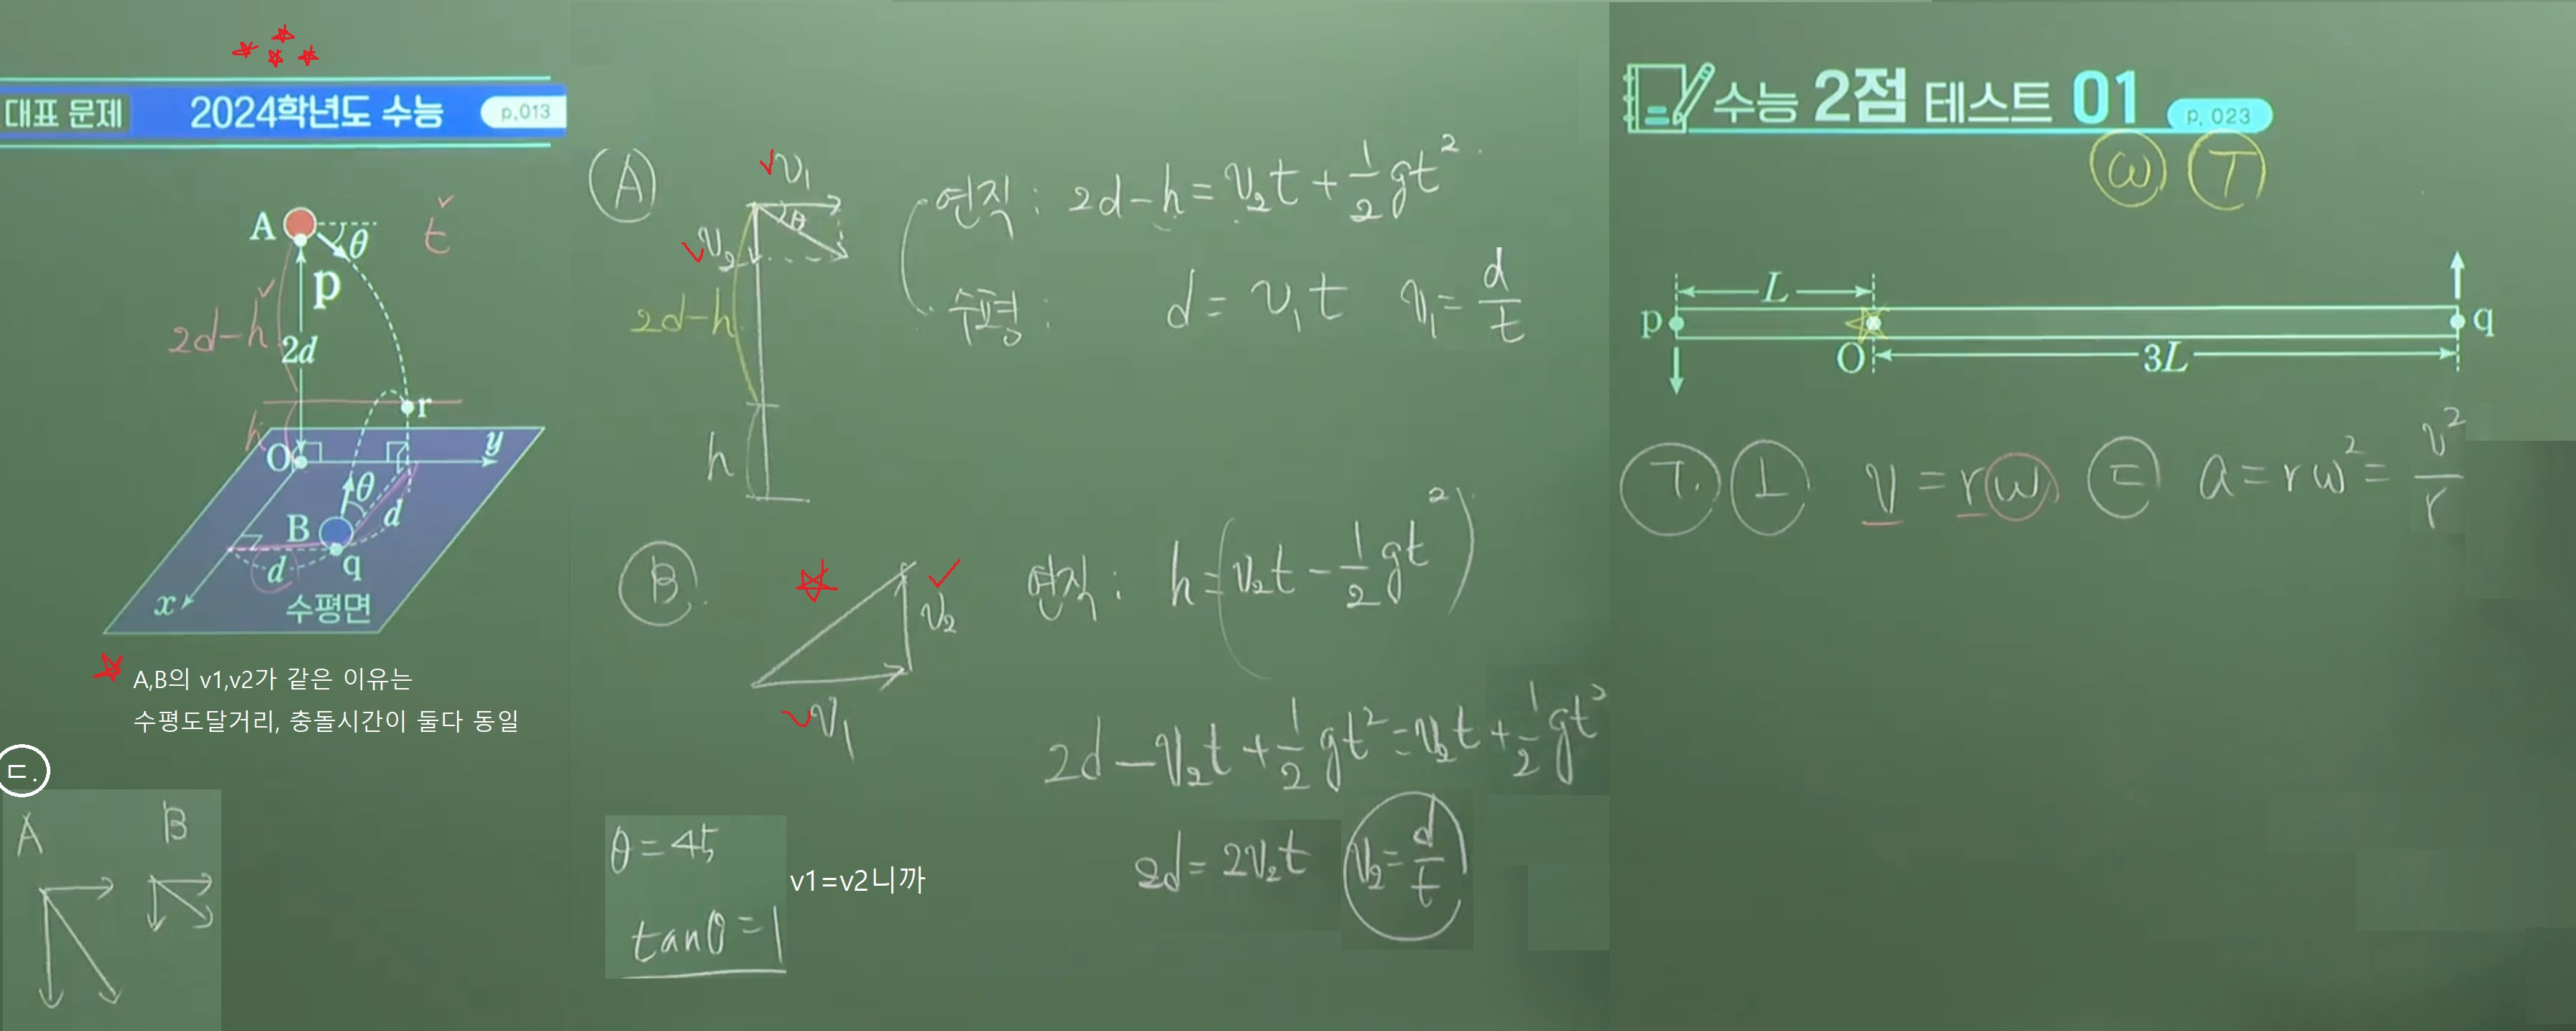 대표 문제 2024학년도 수능 p.013
A θ t
p
2d-h
2d
r
h
O y
θ
B d
d q
x 수평면
A,B의 v1,v2가 같은 이유는
수평도달거리, 충돌시간이 둘다 동일
ㄷ.
A B
A
v₁
θ
v₂
2d-h
h
연직 : 2d-h = v₂t + 1/2 gt²
수평 : d = v₁t v₁ = d/t
B.
v₂
v₁
연직 : h = (v₂t - 1/2 gt²)
2d - v₂t + 1/2 gt² = v₂t + 1/2 gt²
2d = 2v₂t v₂ = d/t
θ = 45
tanθ = 1
v1=v2니까
수능 2점 테스트 01 p. 023
ω T
L
p q
O 3L
ㄱ. ㄴ v = rω ㄷ a = rω² = v²/r